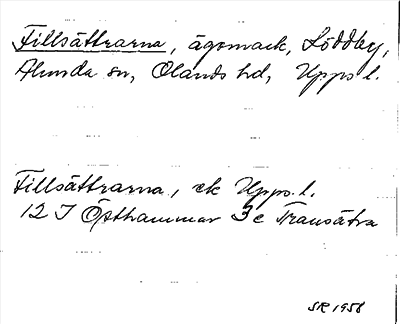 Fillsättrarna, ägomark, Löddby,
Alunda sn, Olands hd, Upps l.
Fillsättrarna, ek Upps. l.
12 I Östhammar 3 c Transätra
SR 1958